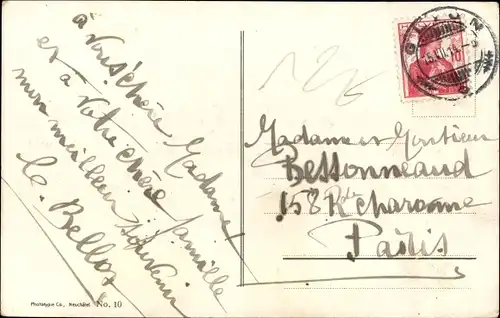 à vous chère Madame
et à votre chère famille
mon meilleur souvenir
C. Bellos
Phototypie Co., Neuchâtel No. 10
GLION
10
Madame et Monsieur
Bessonneaud
158 R de Charonne
Paris